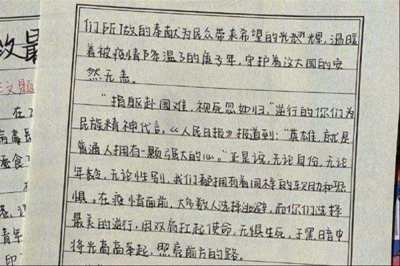 们所做的奉献为民众带来希望的光辉,温暖
着被疫情降温了的庚子年,守护着这大国的安
然无恙。
“捐躯赴国难,视死忽如归。”逆行的你们为
民族精神代言,《人民日报》报道到:“英雄,就是
普通人拥有一颗强大的心。”正是说,无论身份,无论
年龄,无论性别,我们都拥有着同样的致力和恐
惧。在疫情面前,大多数人选择逃避,而你们选择
最美的逆行,用双肩扛起使命,无惧生死,于黑暗中
将光高高举起,照亮前方的路。